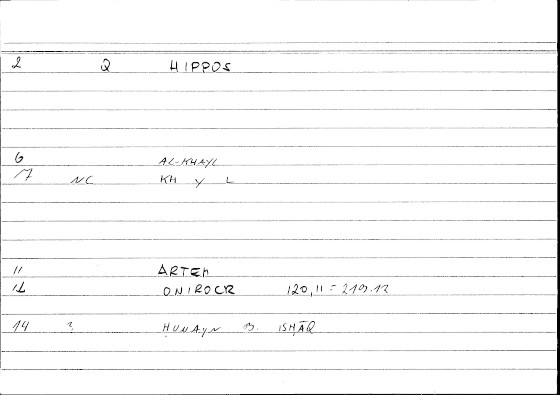 2 Q HIPPOS
6 AL-KHAYL
7 NC KH Y L
11 ARTEM
12 ONIROCR 120,11 = 219.12
14 3 ḤUNAYN B. ISḤĀQ